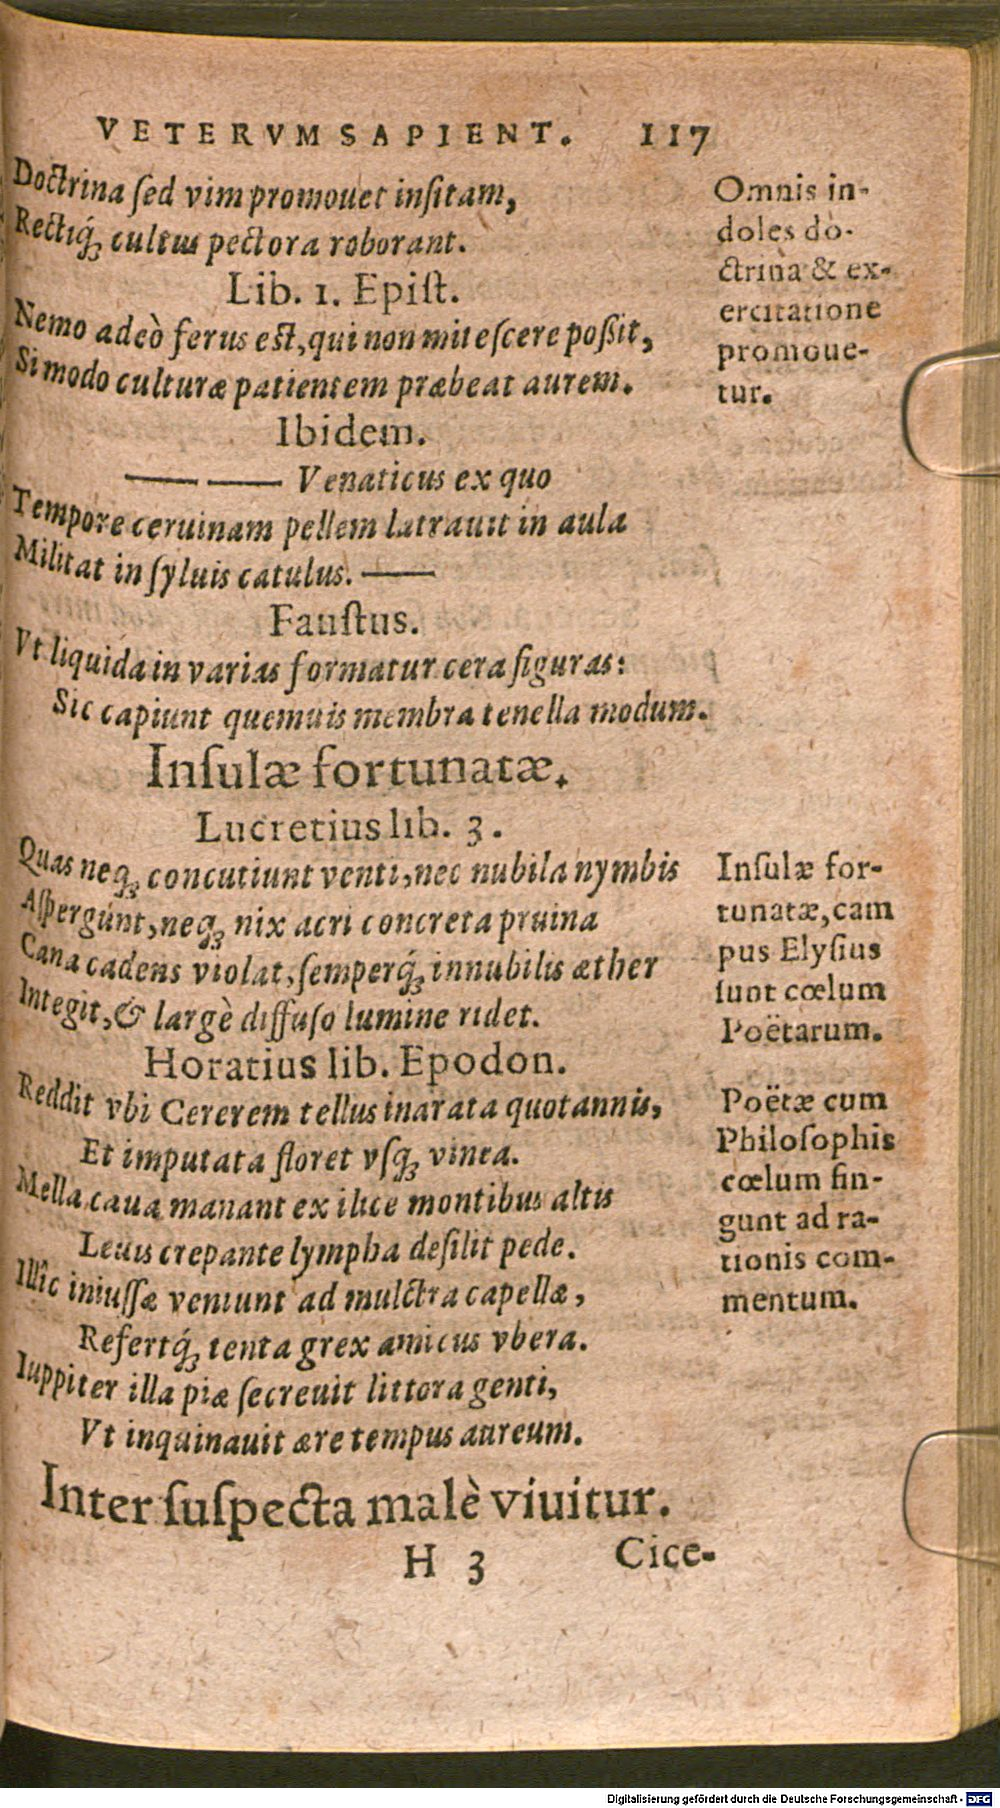 VETERVM SAPIENT. 117
Doctrina ſed vim promouet inſitam,
Rectiq́ꝫ cultus pectora roborant.
Omnis in-
doles do-
ctrina & ex-
ercitatione
promoue-
tur.
Lib. 1. Epiſt.
Nemo adeò ferus eſt, qui non miteſcere poßit,
Si modo culturæ patientem præbeat aurem.
Ibidem.
—— —— Venaticus ex quo
Tempore ceruinam pellem latrauit in aula
Militat in ſyluis catulus. ——
Fauſtus.
Vt liquida in varias formatur cera figuras:
Sic capiunt quemuis membra tenella modum.
Inſulæ fortunatæ.
Lucretius lib. 3.
Quas neqꝫ concutiunt venti, nec nubila nymbis
Aſpergúnt, neqꝫ nix acri concreta pruina
Cana cadens violat, ſemperq́ꝫ innubilis æther
Integit, & largè diffuſo lumine ridet.
Inſulæ for-
tunatæ, cam
pus Elyſius
ſunt cœlum
Poëtarum.
Horatius lib. Epodon.
Reddit vbi Cererem tellus inarata quotannis,
Et imputata floret vſqꝫ vinea.
Mella caua manant ex ilice montibus altis
Leuis crepante lympha deſilit pede.
Illîc iniuſſæ veniunt ad mulctra capellæ,
Refertq́ꝫ tenta grex amicus vbera.
Iuppiter illa piæ ſecreuit littora genti,
Vt inquinauit ære tempus aureum.
Poëtæ cum
Philoſophis
cœlum fin-
gunt ad ra-
tionis com-
mentum.
Inter ſuſpecta malè viuitur.
H 3 Cice-
Digitalisierung gefördert durch die Deutsche Forschungsgemeinschaft - DFG